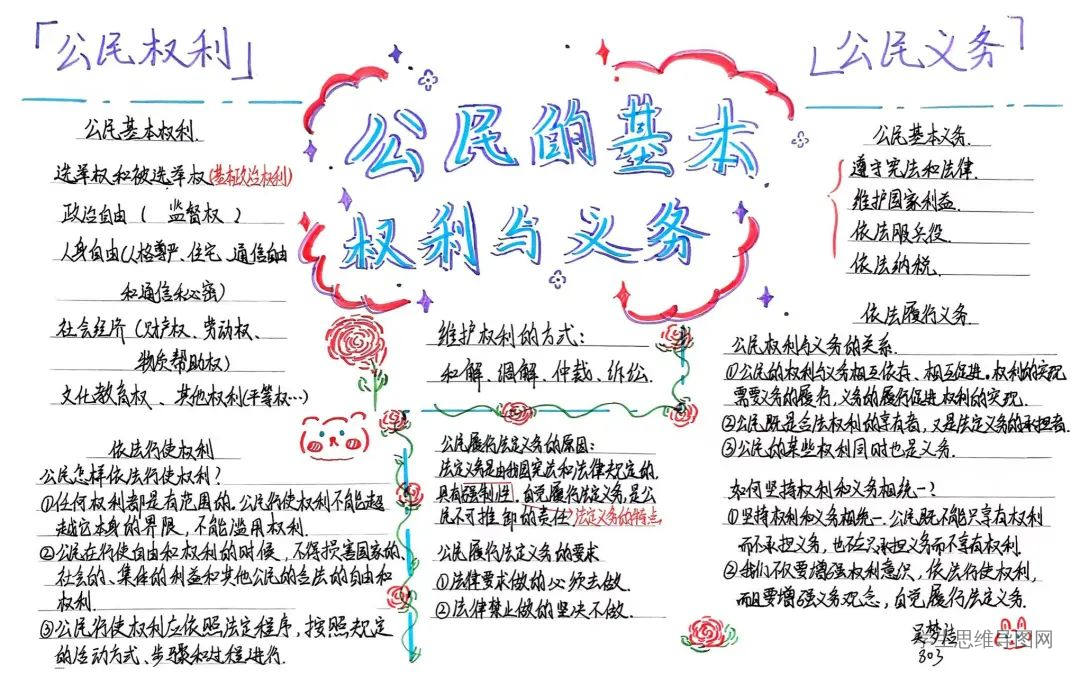 「公民权利」
公民的基本
权利与义务
公民义务
公民基本权利
选举权和被选举权(基本政治权利)
政治自由(监督权)
人身自由(人格尊严、住宅、通信自由
和通信秘密)
社会经济(财产权、劳动权、
物质帮助权)
文化教育权、其他权利(平等权…)
依法行使权利
公民怎样依法行使权利?
①任何权利都是有范围的。公民行使权利不能超
越它本身的界限,不能滥用权利.
②公民在行使自由和权利的时候,不得损害国家的、
社会的、集体的利益和其他公民的合法的自由和
权利.
③公民行使权利应依照法定程序,按照规定
的活动方式、步骤和过程进行.
维护权利的方式:
和解、调解、仲裁、诉讼.
公民履行法定义务的原因:
法定义务是由我国宪法和法律规定的,
具有强制性.自觉履行法定义务,是公
民不可推卸的责任 法定义务的特点
公民履行法定义务的要求
①法律要求做的必须去做.
②法律禁止做的坚决不做.
公民基本义务.
遵守宪法和法律.
维护国家利益.
依法服兵役.
依法纳税.
依法履行义务.
公民权利与义务的关系.
①公民的权利与义务相互依存、相互促进。权利的实现
需要义务的履行,义务的履行促进权利的实现.
②公民既是合法权利的享有者,又是法定义务的承担者.
③公民的某些权利同时也是义务.
如何坚持权利和义务相统一?
①坚持权利和义务相统一.公民既不能只享有权利
而不承担义务,也不应只承担义务而不享有权利.
②我们不仅要增强权利意识,依法行使权利,
而且要增强义务观念,自觉履行法定义务.
吴梦洁
803
思维导图网